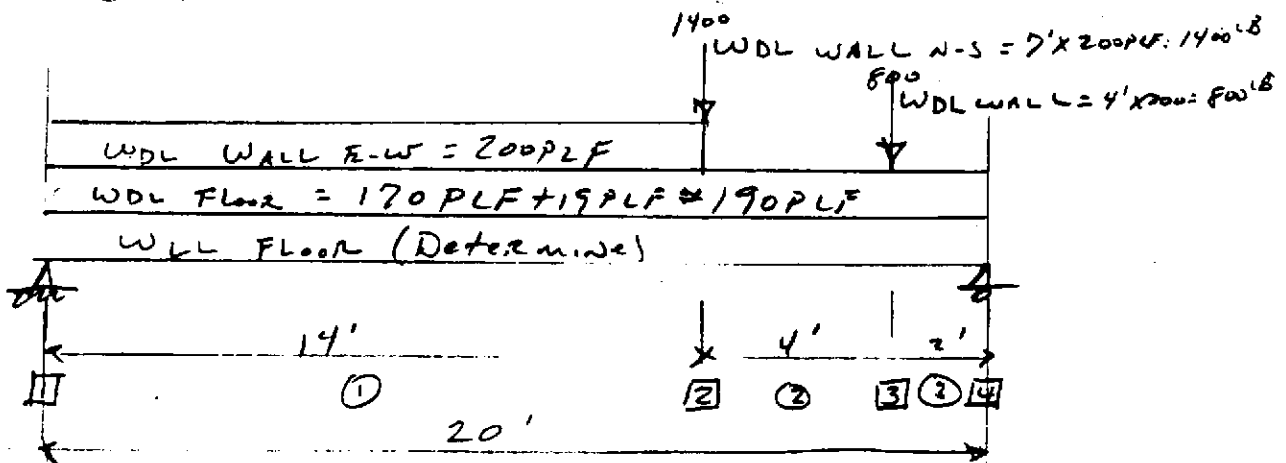 1400
WDL WALL N-S = 7'X200PLF: 1400LB
800
WDL WALL = 4'X200= 800LB
WDL WALL E-W = 200PLF
WDL FLOOR = 170 PLF+19PLF ≈ 190PLF
WLL FLOOR (Determine)
14' 4' 2'
1 1 2 2 3 3 4
20'